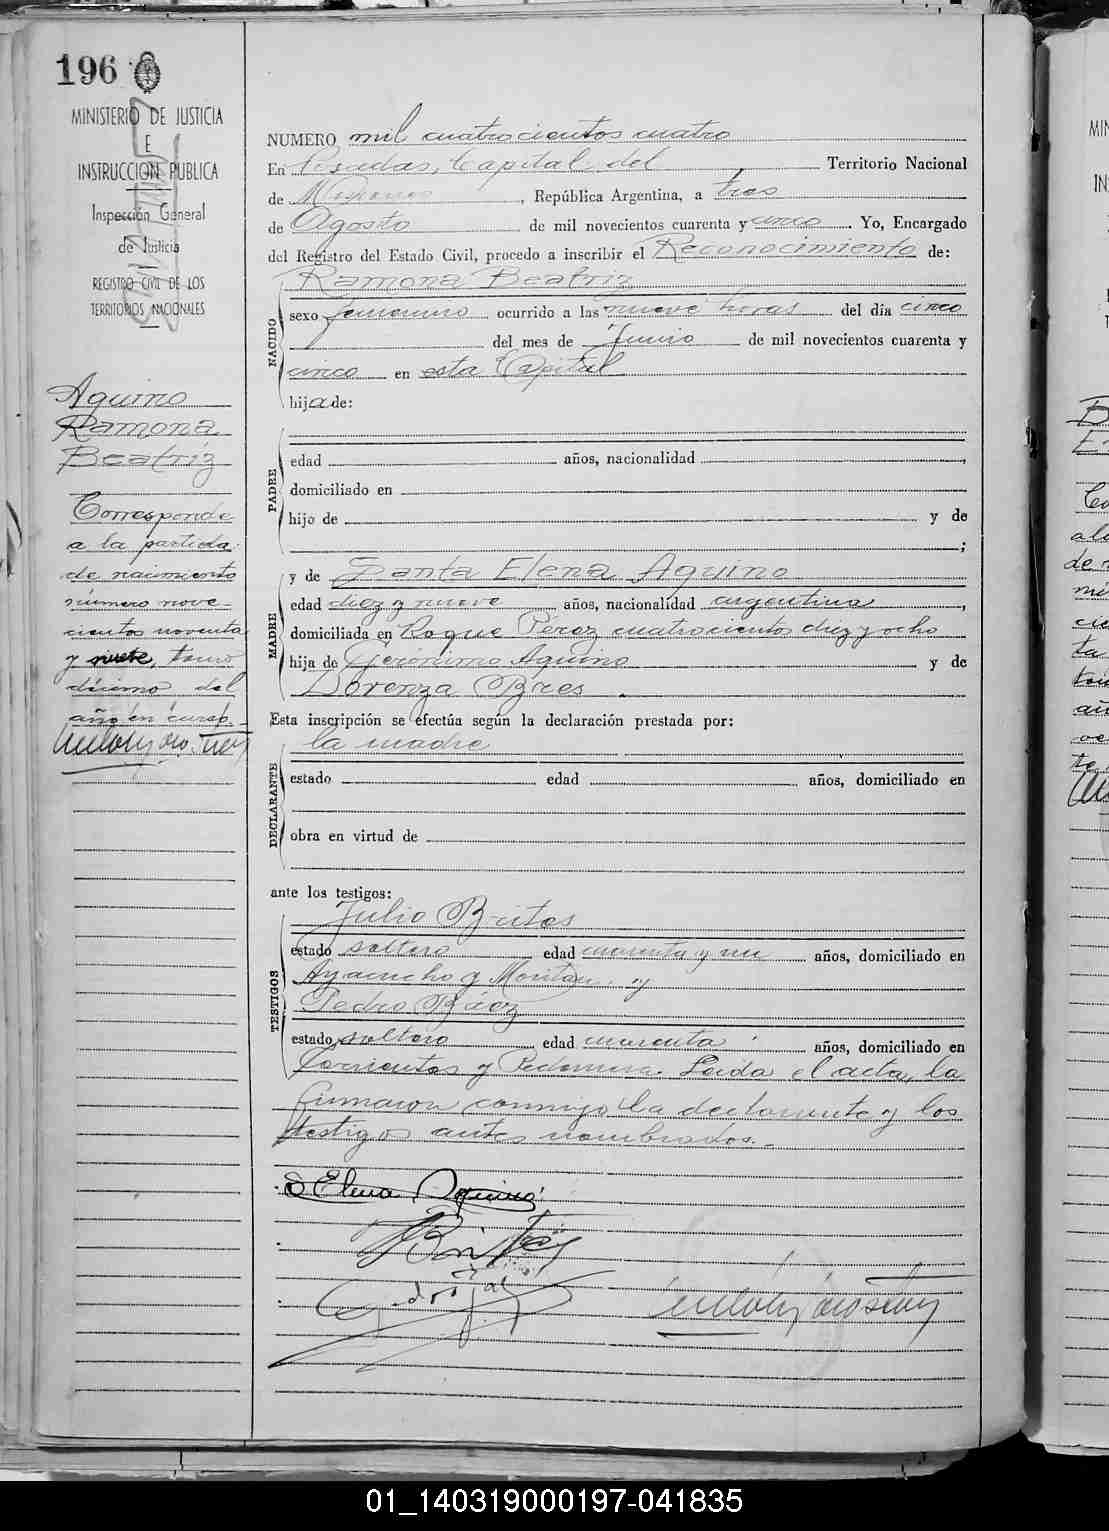 196
MINISTERIO DE JUSTICIA
E
INSTRUCCION PUBLICA
Inspección General
de Justicia
REGISTRO CIVIL DE LOS
TERRITORIOS NACIONALES
Aquino
Ramona
Beatriz
Corresponde
a la partida
de nacimiento
número nove-
cientos noventa
y siete, tomo
décimo del
año en curso.-
NUMERO mil cuatrocientos cuatro
En Posadas, Capital del Territorio Nacional
de Misiones, República Argentina, a tres
de Agosto de mil novecientos cuarenta y cinco. Yo, Encargado
del Registro del Estado Civil, procedo a inscribir el Reconocimiento de:
Ramona Beatriz
NACIDO
sexo femenino ocurrido a las nueve horas del día cinco
del mes de Junio de mil novecientos cuarenta y
cinco en esta Capital
hija de:
PADRE
edad años, nacionalidad ,
domiciliado en
hijo de y de
;
MADRE
y de Santa Elena Aquino
edad diez y nueve años, nacionalidad argentina,
domiciliada en Roque Pérez cuatrocientos diez y ocho
hija de Gerónimo Aquino y de
Lorenza Bries.
Esta inscripción se efectúa según la declaración prestada por:
la madre
DECLARANTE
estado edad años, domiciliado en
obra en virtud de
ante los testigos:
TESTIGOS
Julio Brites
estado soltero edad cuarenta y un años, domiciliado en
Ayacucho y y
Pedro Báez
estado soltero edad cuarenta años, domiciliado en
Corrientes y Pedernera. Leída el acta, la
firmaron conmigo la declarante y los
testigos antes nombrados.-
S Elena Aquino
JBrites
01_140319000197-041835